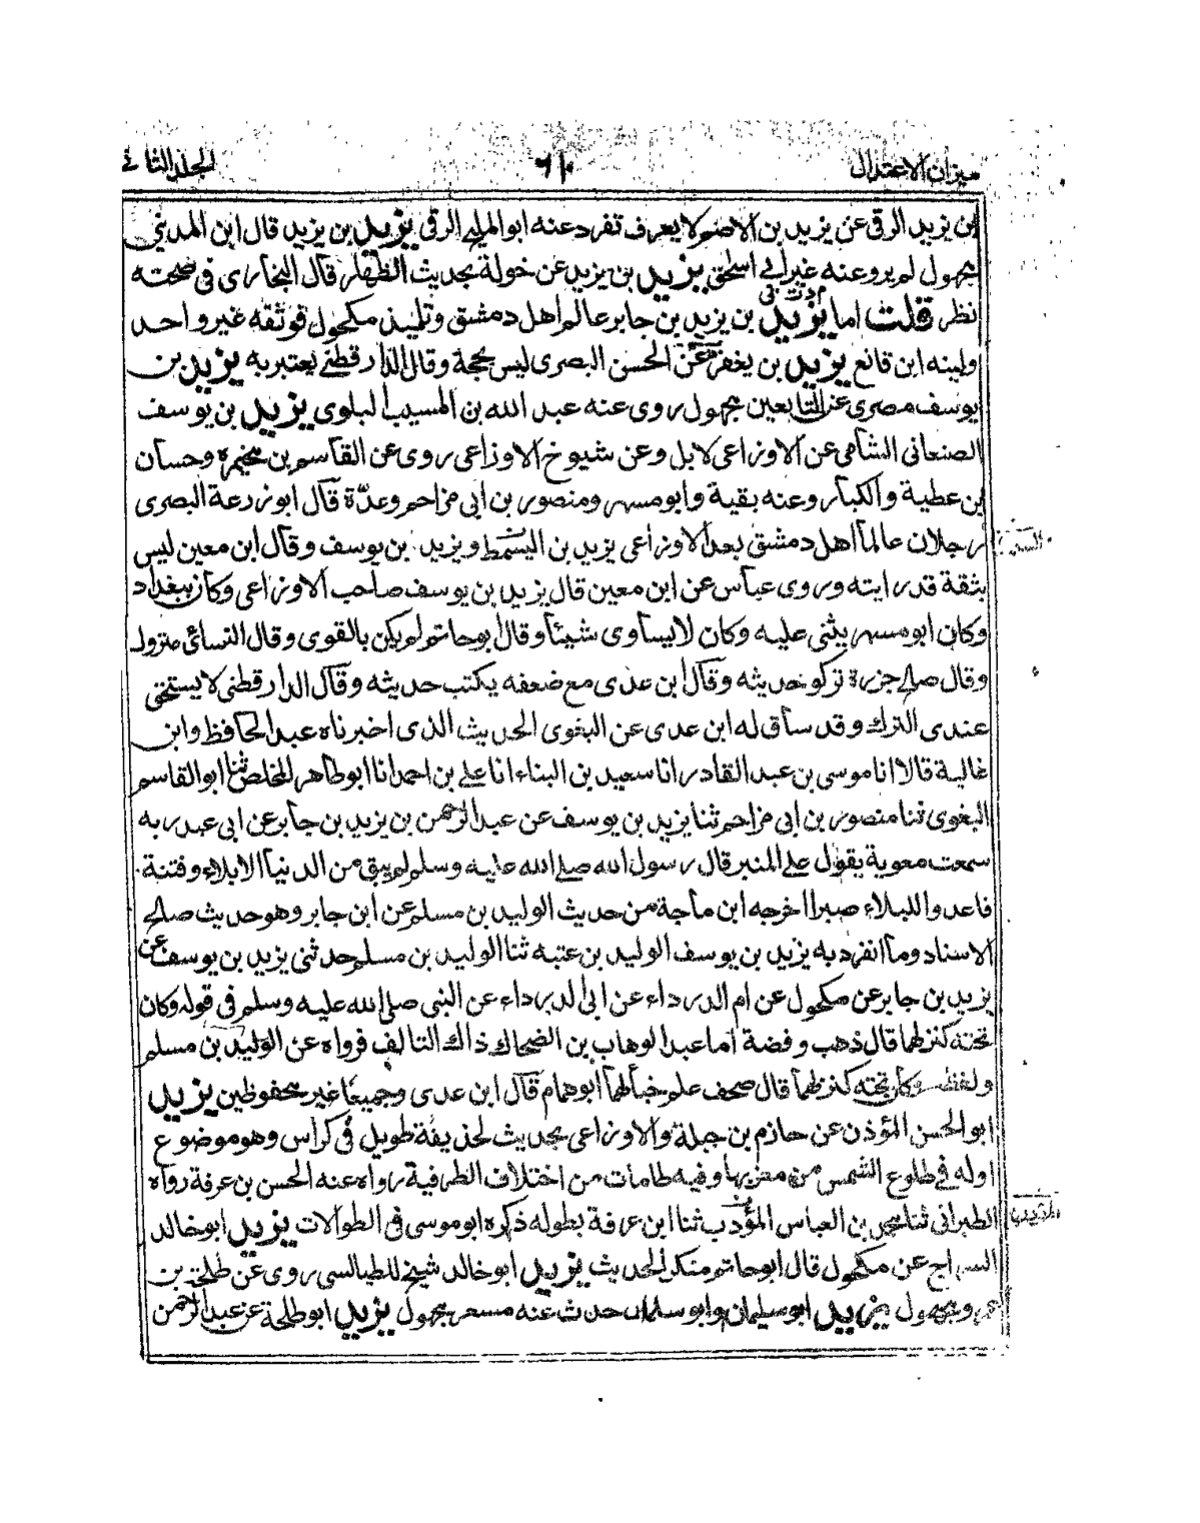 ميزان الاعتدال
٦١٠
الجلد الثاني
ابن يزيد الرقى عن يزيد بن الاصم لا يعرف تفرد عنه ابو المليح الرقى يزيد بن يزيد قال ابن المديني
مجهول لم يرو عنه غير ابي اسحق يزيد بن يزيد عن خولة بحديث الظهار قال البخارى فى صحته
نظر قلت اما يزيد بن يزيد بن جابر عالم اهل دمشق وتلميذ مكحول فوثقه غير واحد
ولينه ابن قانع يزيد بن يغفر عن الحسن البصرى ليس بحجة وقال الدارقطنى يعتبر به يزيد بن
يوسف مصرى عن التابعين مجهول روى عنه عبد الله بن المسيب البلوى يزيد بن يوسف
الصنعانى الشامى عن الاوزاعى لا بل وعن شيوخ الاوزاعى روى عن القاسم بن مخيمره وحسان
بن عطية والكبار وعنه بقية وابو مسهر ومنصور بن ابى مزاحم وعدّة قال ابو زرعة البصرى
رجلان عالما اهل دمشق بعد الاوزاعى يزيد بن السمط ويزيد بن يوسف وقال ابن معين ليس
بثقة قد رايته وروى عباس عن ابن معين قال يزيد بن يوسف صاحب الاوزاعى وكان ببغداد
وكان ابو مسهر يثنى عليه وكان لا يساوى شيئا وقال ابو حاتم لم يكن بالقوى وقال النسائى متروك
وقال صالح جزرة تركوا حديثه وقال ابن عدى مع ضعفه يكتب حديثه وقال الدارقطنى لا يستحق
عندى الترك وقد ساق له ابن عدى عن البغوى الحديث الذى اخبرناه عبد الحافظ وابن
غالية قالا انا موسى بن عبد القادر انا سعيد بن البناء انا على بن احمد انا ابو طاهر المخلص ثنا ابو القاسم
البغوى ثنا منصور بن ابى مزاحم ثنا يزيد بن يوسف عن عبد الرحمن بن يزيد بن جابر عن ابى عبد ربه
سمعت معوية يقول على المنبر قال رسول الله صلى الله عليه وسلم لم يبق من الدنيا الا بلاء وفتنة
فاعدوا للبلاء صبرا اخرجه ابن ماجة من حديث الوليد بن مسلم عن ابن جابر وهو حديث صالح
الاسناد وما انفرد به يزيد بن يوسف الوليد بن عتبه ثنا الوليد بن مسلم حدثنى يزيد بن يوسف عن
يزيد بن جابر عن مكحول عن ام الدرداء عن ابى الدرداء عن النبى صلى الله عليه وسلم فى قوله وكان
تحته كنز لهما قال ذهب وفضة اما عبد الوهاب بن الضحاك ذاك التالف فرواه عن الوليد بن مسلم
ولفظه وكان تحته كنز لهما قال صحف علم خبأ لهما ابوهما قال ابن عدى وجميعا غير محفوظين يزيد
ابو الحسن المؤذن عن حازم بن جبلة والاوزاعى بحديث لحذيفة طويل فى كراس وهو موضوع
اوله فى طلوع الشمس من مغربها وفيه طامات من اختلاف الطرفية رواه عنه الحسن بن عرفة رواه
الطبرانى ثنا محمد بن العباس المؤدب ثنا ابن عرفة بطوله ذكره ابو موسى فى الطوالات يزيد ابو خالد
السراج عن مكحول قال ابو حاتم منكر الحديث يزيد ابو خالد شيخ للطيالسى روى عن طلحة بن
عمرو مجهول يزيد ابو سليمان وابو سلمان حدث عنه مسعر مجهول يزيد ابو طلحة عن عبد الرحمن